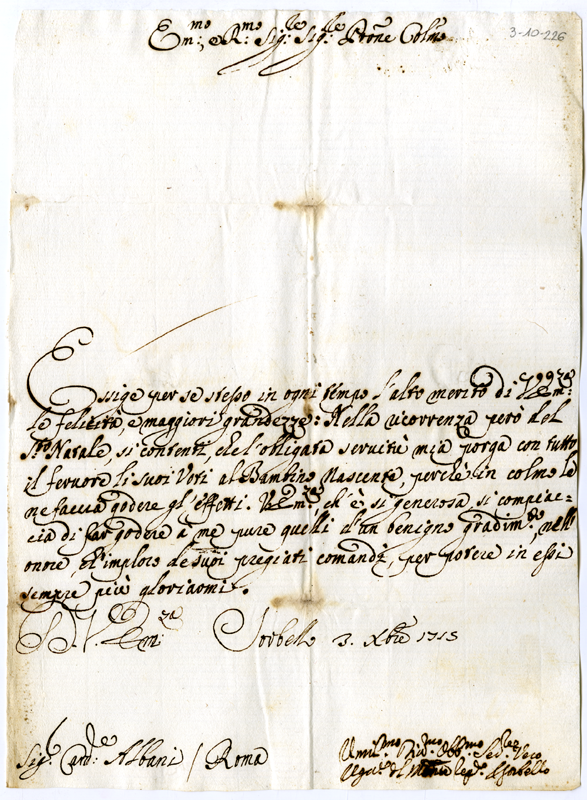 Em:mo e R:mo Sig:re Sig:re P̃rone Colmo
3-10-226
Essige per se stesso in ogni tempo l'alto merito di V. Em:za
le felicità, e maggiori grandezze: Nella ricorrenza però del
S:to Natale, si contenti, che l'obligata servitù mia porga con tutto
il fervore li suoi Voti al Bambino Nascente, perchè in colmo le
ne faccia godere gl'effetti. V. Em:za, ch'è sì generosa, si compiac-
cia di far godere a me pure quelli d'un benigno gradim:to, nell'
onore, che imploro de suoi pregiati comandi, per potere in essi
sempre più gloriarmi.
D. V. Em:za Sorbello 3. Xbre 1715
Sig:r Card:le Albani / Roma
Umil:mo Div:mo Obb:mo Ser:re Vero
Sorbello